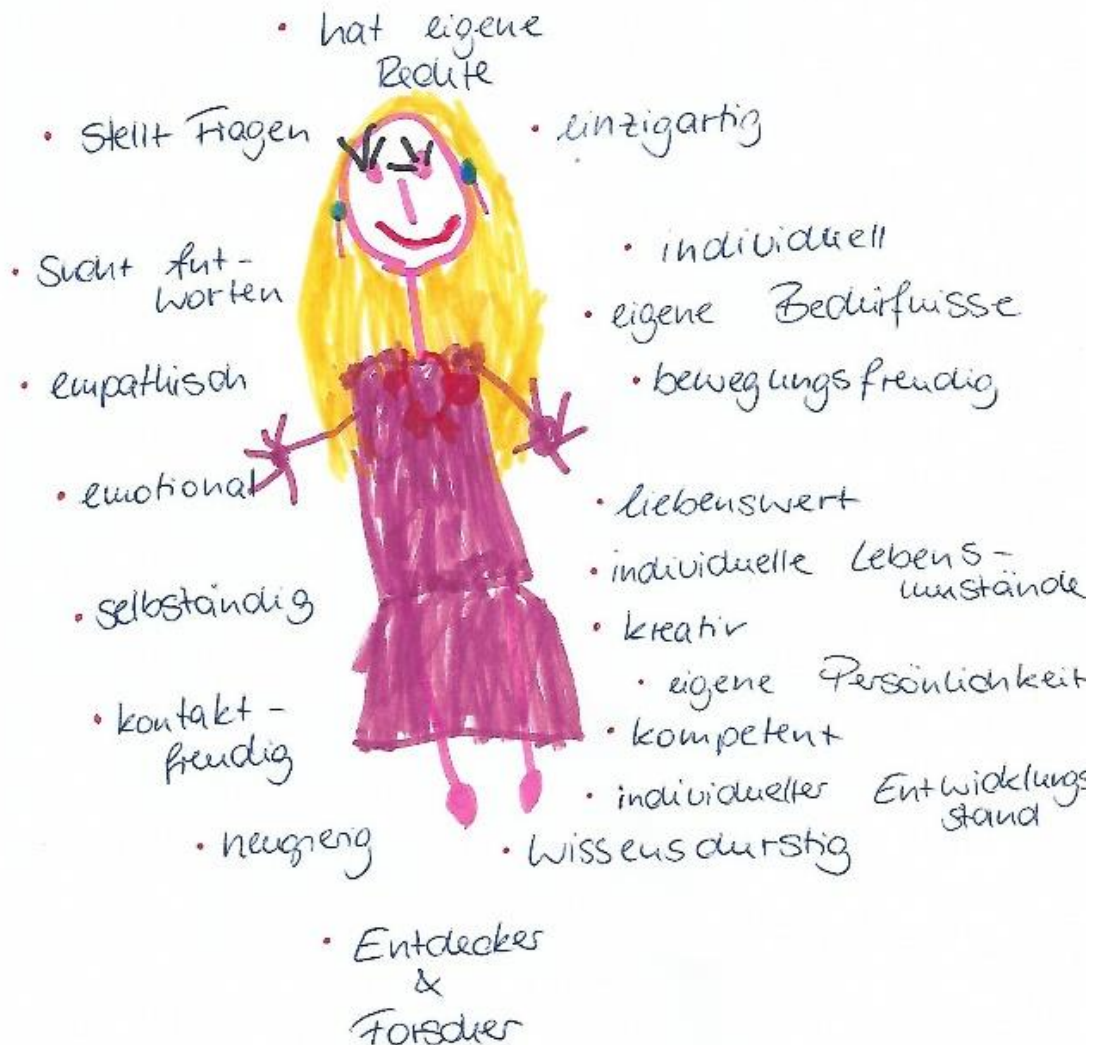 • hat eigene
Rechte
• stellt Fragen
• einzigartig
• individuell
• sucht Ant-
worten
• eigene Bedürfnisse
• empathisch
• bewegungsfreudig
• emotional
• liebenswert
• individuelle Lebens-
umstände
• selbständig
• kreativ
• eigene Persönlichkeit
• kontakt-
freudig
• kompetent
• individueller Entwicklungs
stand
• neugierig
• wissensdurstig
• Entdecker
&
Forscher